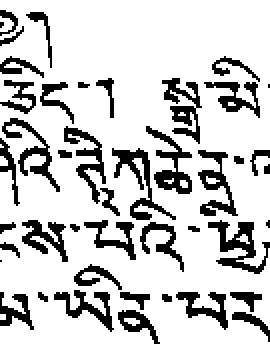 །
ཅིང་། སྒྲ་མི་
འི་ཊཱིཀ་ཆེན་
ངས་པའི་ཕྱི
མ་ཡིན་པར